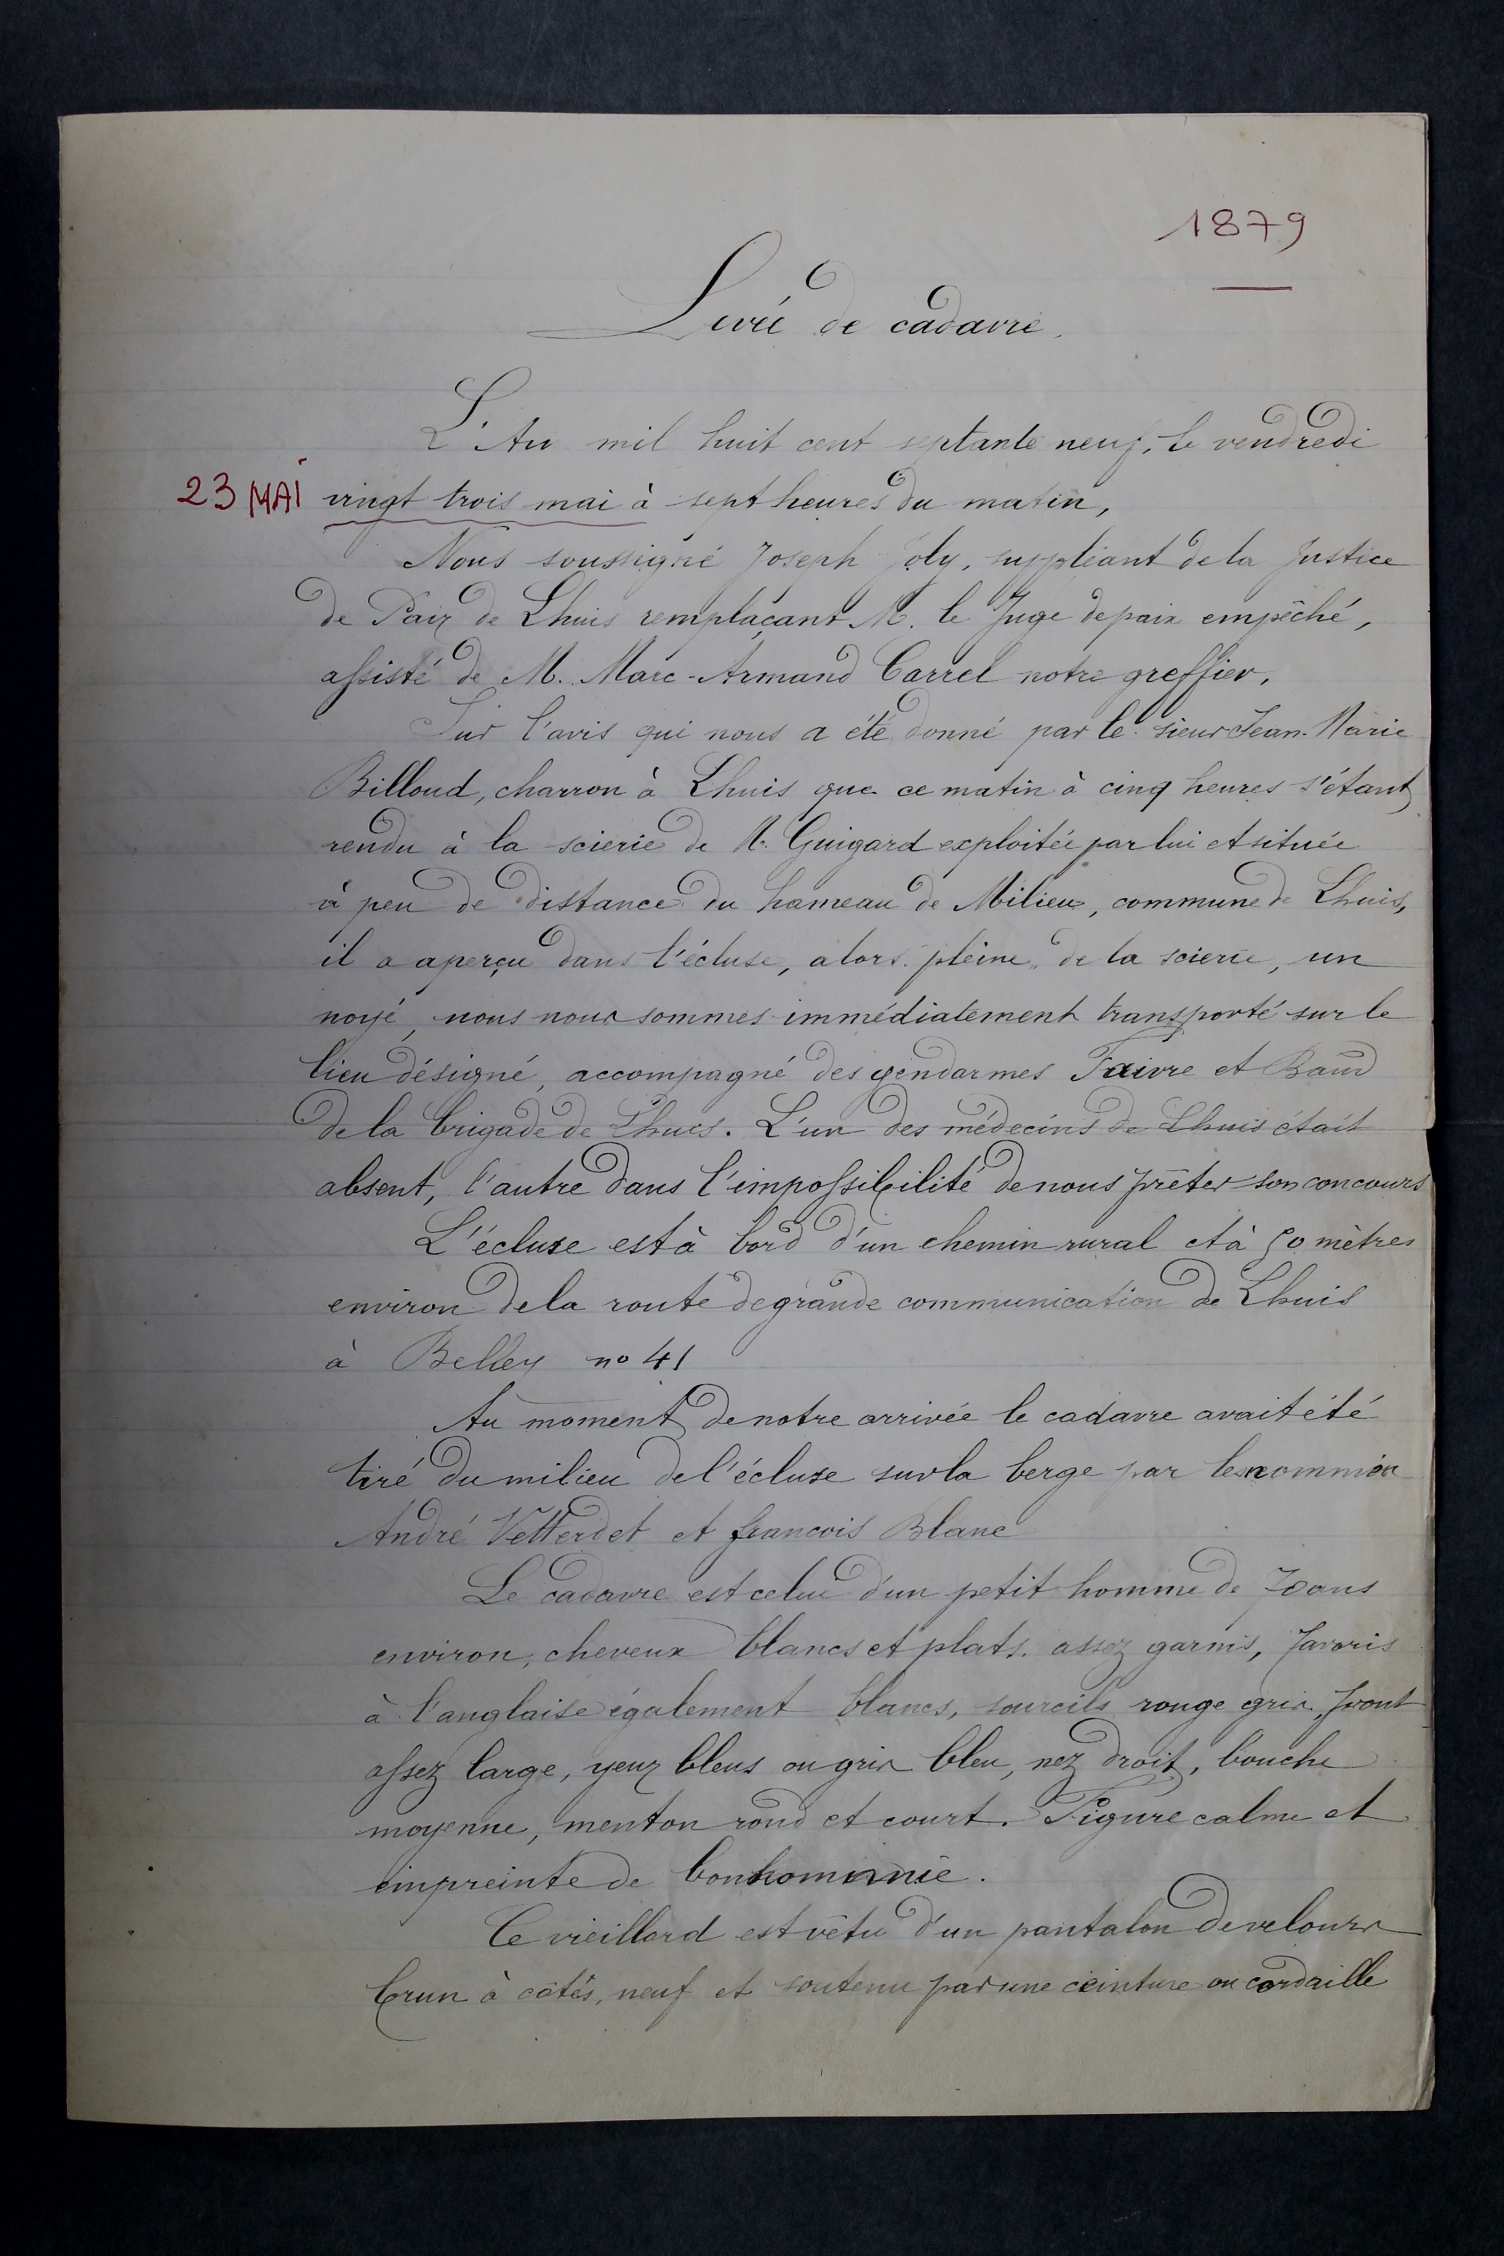 1879
Levée de cadavre.
L'An mil huit cent septante neuf, le vendredi
23 MAI vingt trois mai à sept heures du matin,
Nous soussigné Joseph Joly, suppléant de la Justice
de Paix de Lhuis remplaçant M. le Juge de paix empêché,
assisté de M. Marc-Armand Carrel notre greffier,
Sur l'avis qui nous a été donné par le sieur Jean-Marie
Billoud, charron à Lhuis que ce matin à cinq heures s'étant
rendu à la scierie de M. Guigard exploitée par lui et située
à peu de distance du hameau de Milieu, commune de Lhuis,
il a aperçu dans l'écluse, alors pleine, de la scierie, un
noyé, nous nous sommes immédiatement transporté sur le
lieu désigné, accompagné des gendarmes Faivre et Baud
de la brigade de Lhuis. L'un des médecins de Lhuis était
absent, l'autre dans l'impossibilité de nous prêter son concours
L'écluse est à bord d'un chemin rural et à 50 mètres
environ de la route de grande communication de Lhuis
à Belley no 41
Au moment de notre arrivée le cadavre avait été
tiré du milieu de l'écluse sur la berge par les nommés
André Vetterdet et francois Blanc
Le cadavre est celui d'un petit homme de 70 ans
environ, cheveux blancs et plats. assez garnis, favoris
à l'anglaise également blancs, sourcils rouge gris, front
assez large, yeux bleus ou gris bleu, nez droit, bouche
moyenne, menton rond et court. Figure calme et
empreinte de bonhommie.
Ce vieillard est vêtu d'un pantalon de velours
brun à côtés, neuf et soutenu par une ceinture ou cordaille